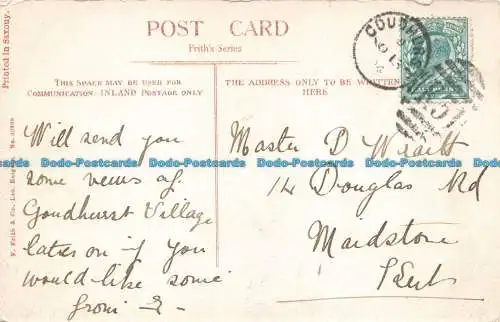 POST CARD
Frith's Series
THIS SPACE MAY BE USED FOR
COMMUNICATION: INLAND POSTAGE ONLY
THE ADDRESS ONLY TO BE WRITTEN
HERE
Printed in Saxony.
F. Frith & Co., Ltd., Reigate
HALFPENNY
Will send you
some views of
Goudhurst Village
later on if you
would like some
from
Master D
14 Douglas Rd
Maidstone
Kent
Dodo-Postcards Dodo-Postcards Dodo-Postcards Dodo-Postcards